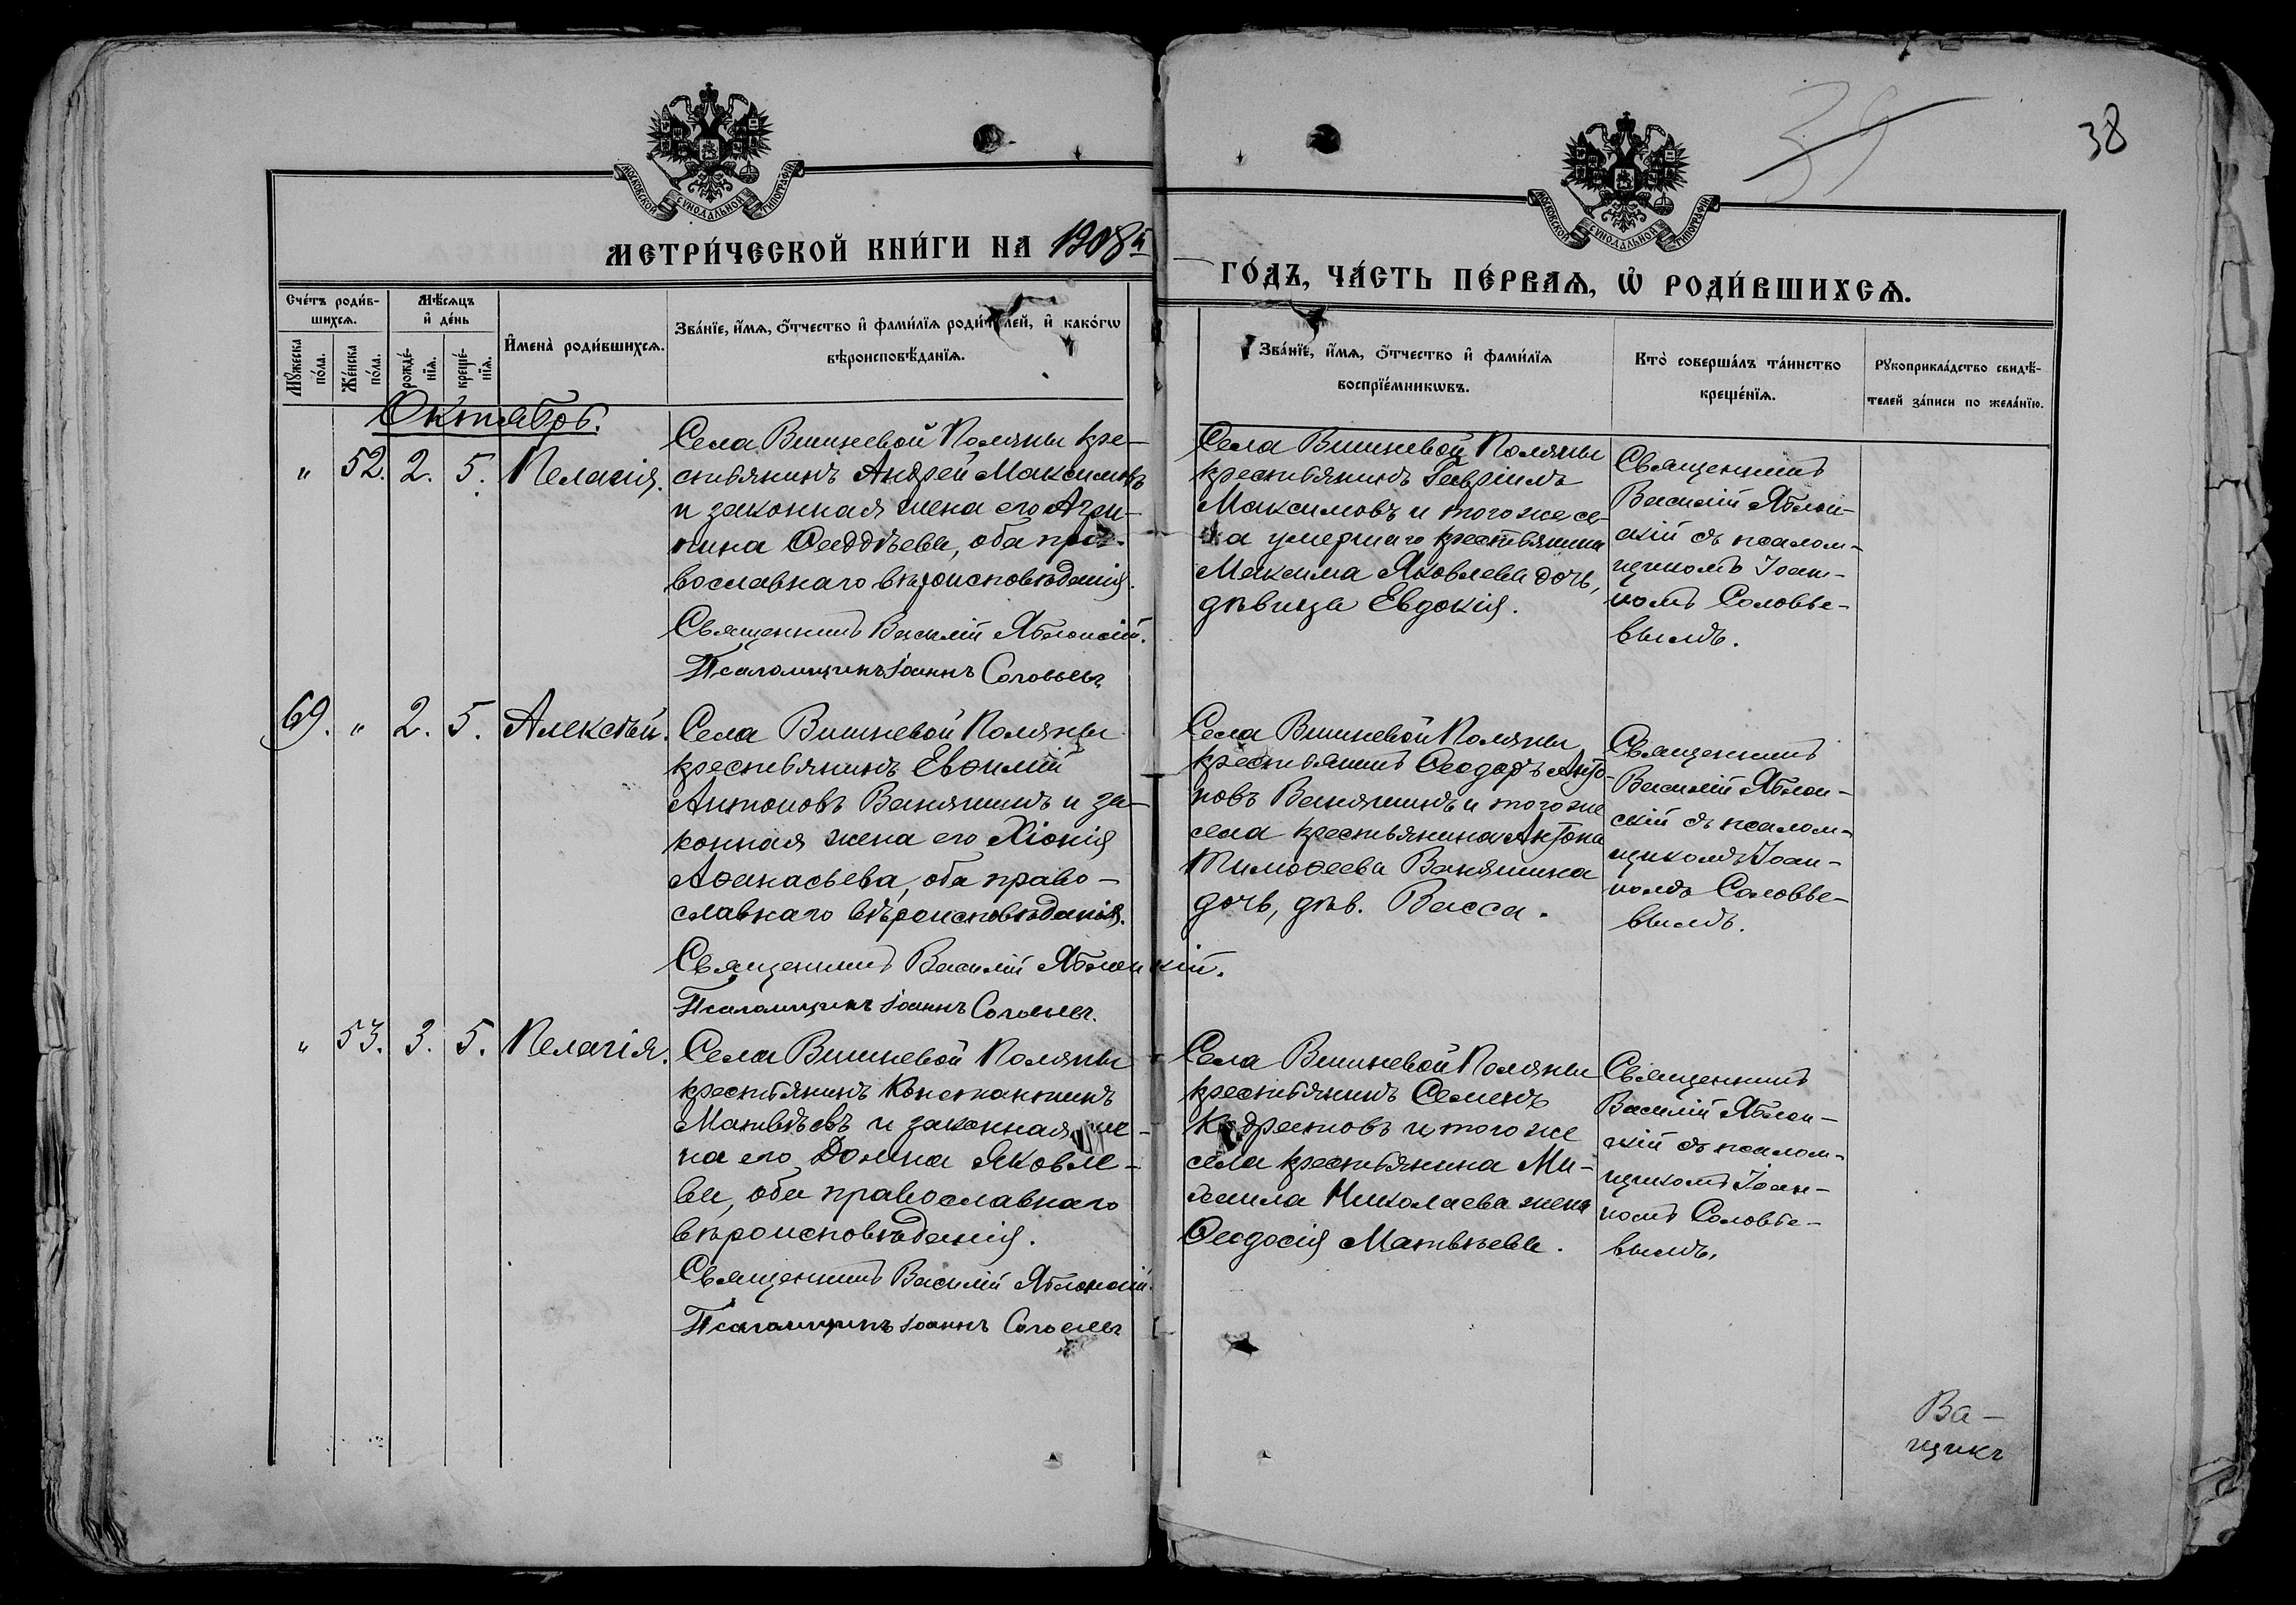 39
38
МОСКОВСКОЙ СѴНОДАЛЬНОЙ ТИПОГРАФІИ
МОСКОВСКОЙ СѴНОДАЛЬНОЙ ТИПОГРАФІИ
МЕТРИ́ЧЕСКОЙ КНИ́ГИ НА 1908й
ГО́ДЪ, ЧА́СТЬ ПЕ́РВАѦ, Ѽ РОДИ́ВШИХСѦ.
Сче́тъ роди́в-
шихсѧ.
Мꙋ́жеска по́ла.
Же́нска по́ла.
Мѣ́сѧцъ
и҆ де́нь
рожде́-
нїѧ.
креще́-
нїѧ.
И҆мена̀ роди́вшихсѧ.
Зва́нїе, и҆́мѧ, ѻ҆́тчество и҆ фами́лїѧ роди́телей, и҆ како́гѡ
вѣроисповѣ́данїѧ.
Зва́нїе, и҆́мѧ, ѻ҆́тчество и҆ фами́лїѧ
воспрїе́мникѡвъ.
Кто̀ соверша́лъ та́инство
креще́нїѧ.
Рꙋкоприкла́дство свидѣ́-
телей за́писи по жела́нїю.
Октябрь.
" 52. 2. 5. Пелагія.
Села Вишневой Поляны кре-
стьянинъ Андрей Максимовъ
и законная жена его Агри-
пина Ѳаддѣева, оба пра-
вославнаго вѣроисповѣданія.
Священникъ Василій Яблонскій.
Псаломщикъ Іоаннъ Соловьевъ
Села Вишневой Поляны
крестьянинъ Гавріилъ
Максимовъ и того же се-
ла умершаго крестьянина
Максима Яковлева дочь,
дѣвица Евдокія.
Священникъ
Василій Яблон-
скій съ псалом-
щикомъ Іоан-
номъ Соловье-
вымъ.
69. " 2. 5. Алексѣй.
Села Вишневой Поляны
крестьянинъ Евѳимій
Антоновъ Ваняшинъ и за-
конная жена его Хіонія
Аѳанасьева, оба право-
славнаго вѣроисповѣданія.
Священникъ Василій Яблонскій.
Псаломщикъ Іоаннъ Соловьевъ.
Села Вишневой Поляны
крестьянинъ Ѳеодоръ Анто-
новъ Ваняшинъ и того же
села крестьянина Антона
Тимоѳеева Ваняшина
дочь, дѣв. Васса.
Священникъ
Василій Яблон-
скій съ псалом-
щикомъ Іоан-
номъ Соловье-
вымъ.
" 53. 3. 5. Пелагія.
Села Вишневой Поляны
крестьянинъ Константинъ
Матвѣевъ и законная же-
на его Домна Яковле-
ва, оба православнаго
вѣроисповѣданія.
Священникъ Василій Яблонскій.
Псаломщикъ Іоаннъ Соловьевъ
Села Вишневой Поляны
крестьянинъ Семенъ
и того же
села крестьянина Ми-
хаила Николаева жена
Ѳеодосія Матвѣева.
Священникъ
Василій Яблон-
скій съ псалом-
щикомъ Іоан-
номъ Соловье-
вымъ.
Ва-
щикъ